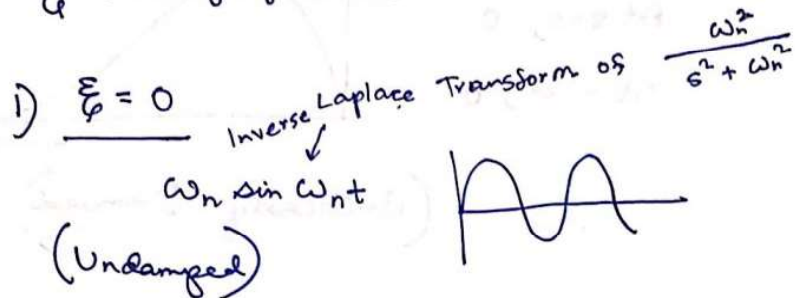 1) ξ = 0
Inverse Laplace Transform of ωn² / s² + ωn²
ωn sin ωnt
(Undamped)